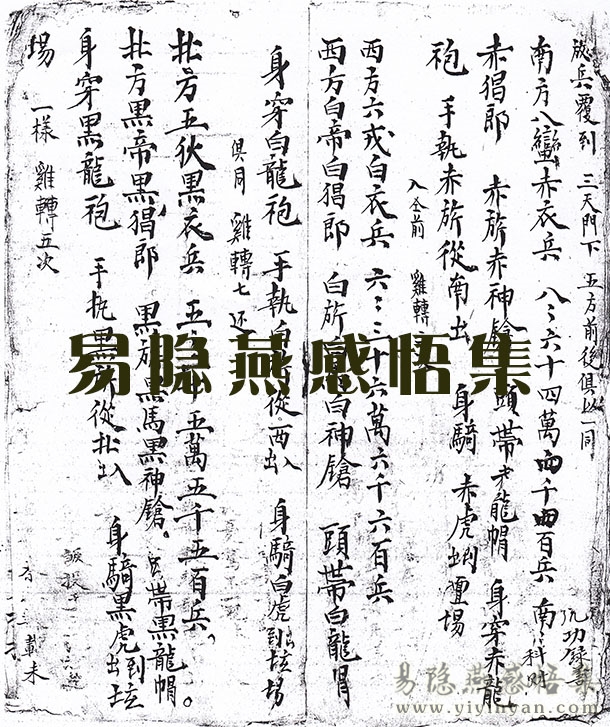 放兵覆到 三天門下 五方前後俱以一同
南方八蠻赤衣兵 八八六十四萬四千四百兵 南
赤猖郎 赤旂赤神鎗 頭帶赤龍帽 身穿赤龍
袍 手執赤旂從南出 身騎赤虎到壇場
入全前 雞轉
西方六戎白衣兵 六六三十六萬六千六百兵
西方白帝白猖郎 白旂白神鎗 頭帶白龍冐
身穿白龍袍 手執白 從西出入 身騎白虎到坛场
俱同 雞轉七还
北方五狄黑衣兵 五五 五萬五千五百兵。
北方黑帝黑猖郎 黑旂黑馬黑神鎗。 帶黑龍帽。
身穿黑龍袍 手执黑 從北出入 身騎黑虎出到坛
場 一樣 雞轉五次
易隐燕感悟集
易隐燕感悟集
www.yiyinyan.com